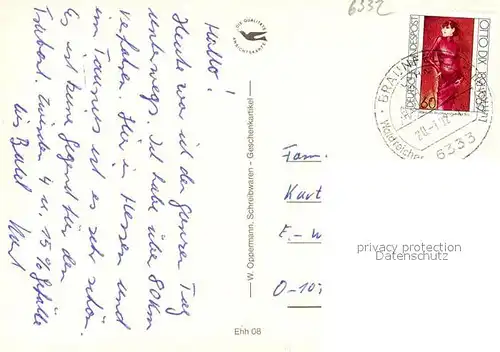 Hallo!
Heute war ich den ganzen Tag
unterwegs. Ich habe über 80 Km
verfahren. Hier in Hessen und
im Taunus ist es sehr schön.
Es ist keine Gegend für den
zwischen 4 u. 15% Gefälle
Kurt
DIE QUALITÄTS
ANSICHTSKARTE
W. Oppermann, Schreibwaren - Geschenkartikel
Ehh 08
6332
DEUTSCHE BUNDESPOST
OTTO DIX
60
BRAUNFELS
6333
Fam.
Kurt
E.-W
O-10
privacy protection
Datenschutz